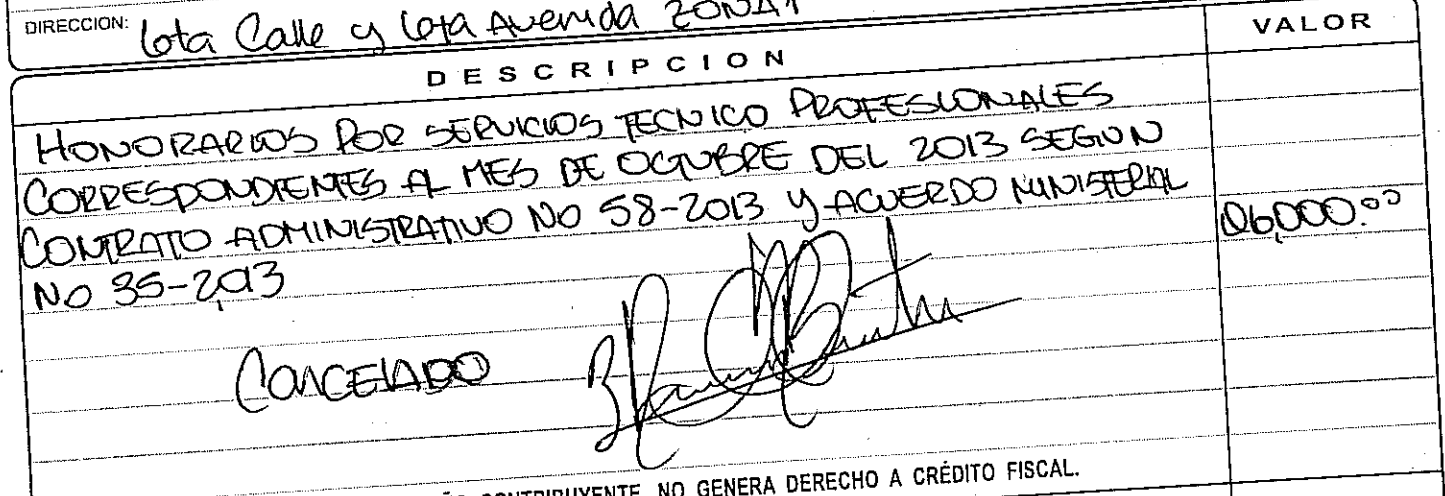 DIRECCION: 6ta Calle y 6ta Avenida ZONA 1
DESCRIPCION
VALOR
HONORARIOS POR SERVICIOS TECNICO PROFESIONALES
CORRESPONDIENTES AL MES DE OCTUBRE DEL 2013 SEGUN
CONTRATO ADMINISTRATIVO NO 58-2013 y ACUERDO MINISTERIAL
Q6,000.00
NO 35-2013
CANCELADO
CONTRIBUYENTE, NO GENERA DERECHO A CRÉDITO FISCAL.